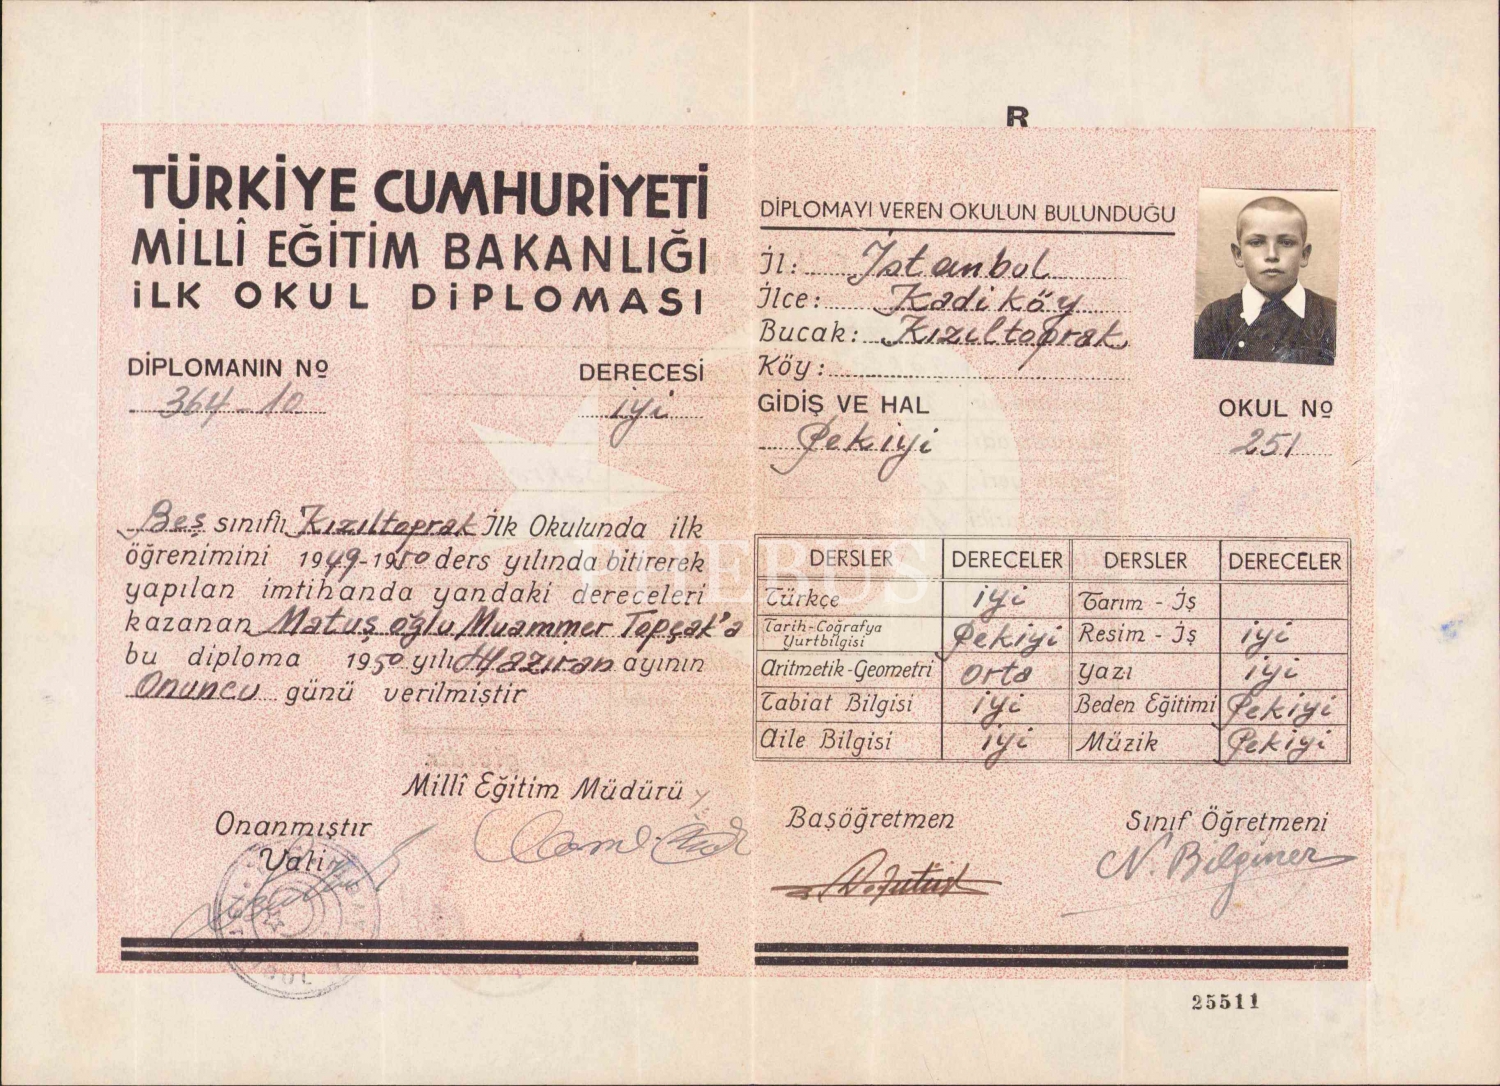 R
TÜRKİYE CUMHURİYETİ
MİLLÎ EĞİTİM BAKANLIĞI
İLK OKUL DİPLOMASI
DİPLOMANIN Nº
364-10
DERECESİ
iyi
Beş sınıflı Kızıltoprak İlk Okulunda ilk
öğrenimini 1949-1950 ders yılında bitirerek
yapılan imtihanda yandaki dereceleri
kazanan Matuş oğlu Muammer Topçak'a
bu diploma 1950 yılı Haziran ayının
Onuncu günü verilmiştir
Millî Eğitim Müdürü
Onanmıştır
Vali
DİPLOMAYI VEREN OKULUN BULUNDUĞU
İl: İstanbul
İlçe: Kadiköy
Bucak: Kızıltoprak
Köy:
GİDİŞ VE HAL
Pekiyi
OKUL Nº
251
DERSLER DERECELER DERSLER DERECELER
Türkçe iyi Tarım - İş
Tarih-Coğrafya Yurtbilgisi Pekiyi Resim - İş iyi
Aritmetik-Geometri orta Yazı iyi
Tabiat Bilgisi iyi Beden Eğitimi Pekiyi
Aile Bilgisi iyi Müzik Pekiyi
Başöğretmen
Sınıf Öğretmeni
N. Bilginer
25511
PHEBUS